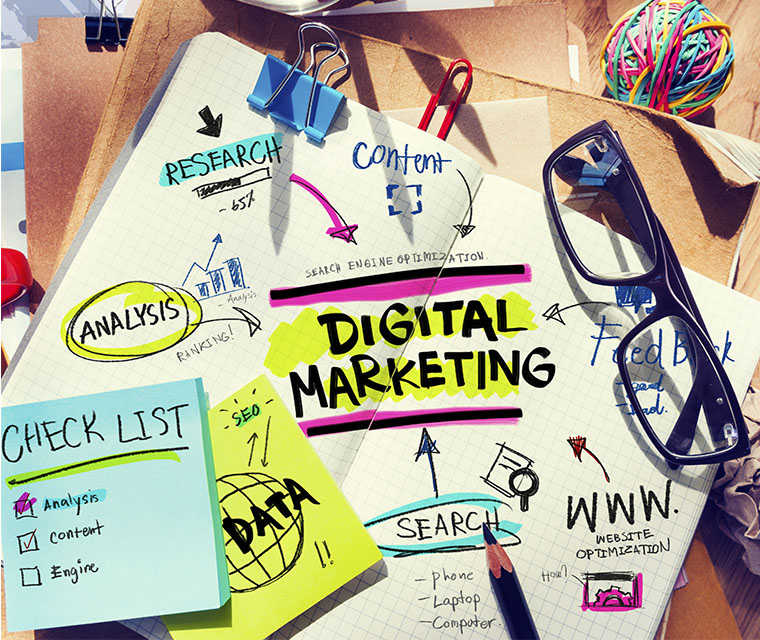 RESEARCH
- 65%
Content
SEARCH ENGINE OPTIMIZATION.
- Analysis
ANALYSIS
RANKING!
DIGITAL
MARKETING
Feed Back
- good
- bad.
CHECK LIST
Analysis
Content
Engine
SEO
DATA
!!
SEARCH
- phone
- Laptop
- Computer.
WWW.
WEBSITE
OPTIMIZATION
How?